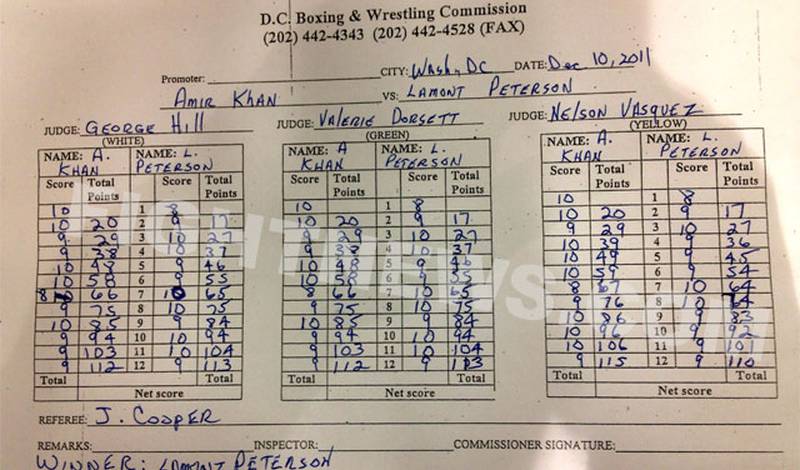 D.C. Boxing & Wrestling Commission
(202) 442-4343 (202) 442-4528 (FAX)
Promoter: CITY: Wash, DC DATE: Dec 10, 2011
AMIR KHAN VS: LAMONT PETERSON
JUDGE: GEORGE Hill JUDGE: VALERIE DORSETT JUDGE: NELSON VASQUEZ
(WHITE) (GREEN) (YELLOW)
NAME: A. KHAN NAME: L. PETERSON NAME: A KHAN NAME: L. PETERSON NAME: A. KHAN NAME: L. PETERSON
Score Total Points Score Total Points Score Total Points Score Total Points Score Total Points Score Total Points
10 1 8 10 1 8 10 1 8
10 20 2 9 17 10 20 2 9 17 10 20 2 9 17
9 29 3 10 27 9 29 3 10 27 9 29 3 10 27
9 38 4 10 37 9 38 4 10 37 10 39 4 9 36
10 48 5 9 46 10 48 5 9 46 10 49 5 9 45
10 58 6 9 55 10 58 6 9 55 10 59 6 9 54
8 66 7 10 65 8 66 7 10 65 8 67 7 10 64
9 75 8 10 75 9 75 8 10 75 9 76 8 10
10 85 9 9 84 10 85 9 9 84 10 86 9 9 83
9 94 10 10 94 9 94 10 10 94 10 96 10 9 92
9 103 11 10 104 9 103 11 10 104 10 106 11 9 101
9 112 12 9 113 9 112 12 9 113 9 115 12 9 110
Total Total Total Total Total Total
Net score Net score Net score
REFEREE: J. COOPER
REMARKS: INSPECTOR: COMMISSIONER SIGNATURE:
WINNER: LAMONT PETERSON
FIGHTNEWS.COM